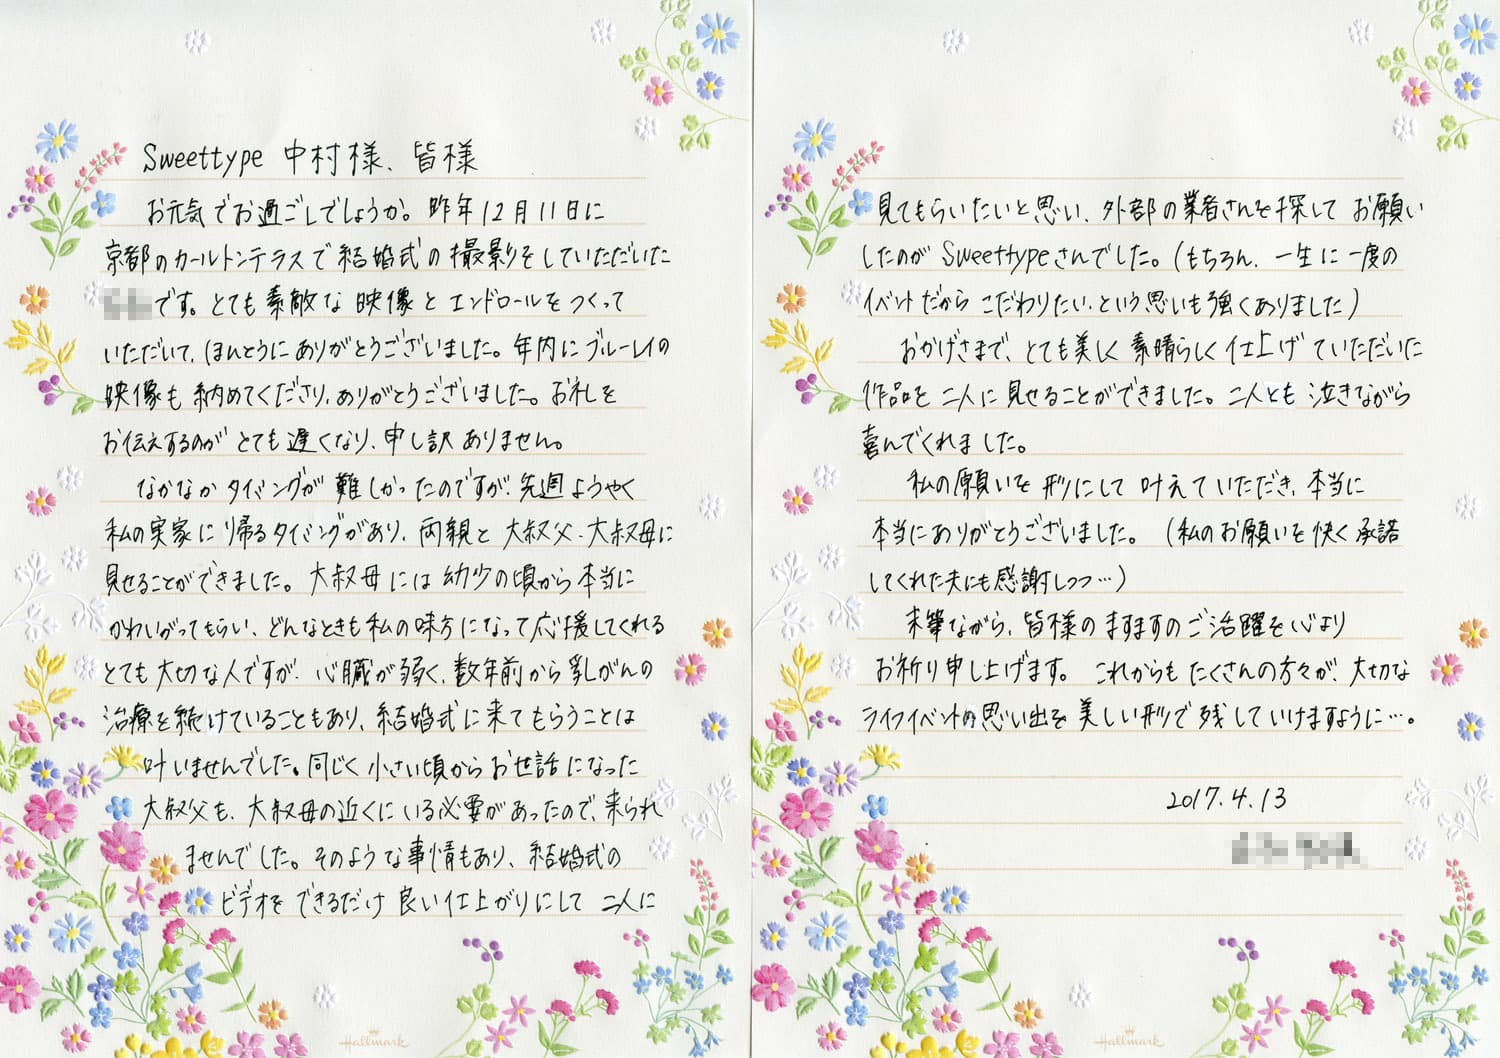 Sweettype 中村様、皆様
お元気でお過ごしでしょうか。昨年12月11日に
京都のカールトンテラスで結婚式の撮影をしていただいた
です。とても素敵な映像とエンドロールをつくって
いただいて、ほんとうにありがとうございました。年内にブルーレイの
映像も納めてくださり、ありがとうございました。お礼を
お伝えするのがとても遅くなり、申し訳ありません。
なかなかタイミングが難しかったのですが、先週ようやく
私の実家に帰るタイミングがあり、両親と大叔父・大叔母に
見せることができました。大叔母には幼少の頃から本当に
かわいがってもらい、どんなときも私の味方になって応援してくれる
とても大切な人ですが、心臓が弱く、数年前から乳がんの
治療を続けていることもあり、結婚式に来てもらうことは
叶いませんでした。同じく小さい頃からお世話になった
大叔父も、大叔母の近くにいる必要があったので、来られ
ませんでした。そのような事情もあり、結婚式の
ビデオをできるだけ良い仕上がりにして二人に
Hallmark
見てもらいたいと思い、外部の業者さんを探してお願い
したのがSweettypeさんでした。(もちろん、一生に一度の
イベントだからこだわりたい、という思いも強くありました)
おかげさまで、とても美しく素晴らしく仕上げていただいた
作品を二人に見せることができました。二人とも泣きながら
喜んでくれました。
私の願いを形にして叶えていただき、本当に
本当にありがとうございました。(私のお願いを快く承諾
してくれた夫にも感謝しつつ…)
末筆ながら、皆様のますますのご活躍を心より
お祈り申し上げます。これからもたくさんの方々が、大切な
ライフイベントの思い出を美しい形で残していけますように…。
2017.4.13
Hallmark